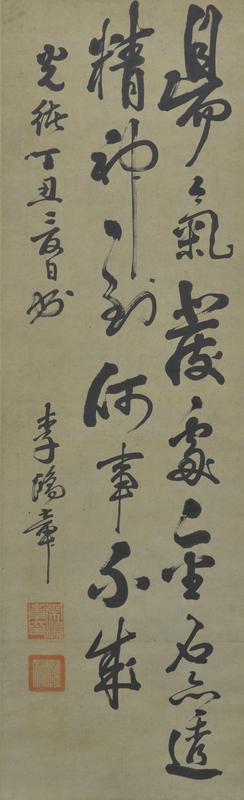 陽氣發處金石亦透
精神一到何事不成
光緒丁丑夏日書
李鴻章